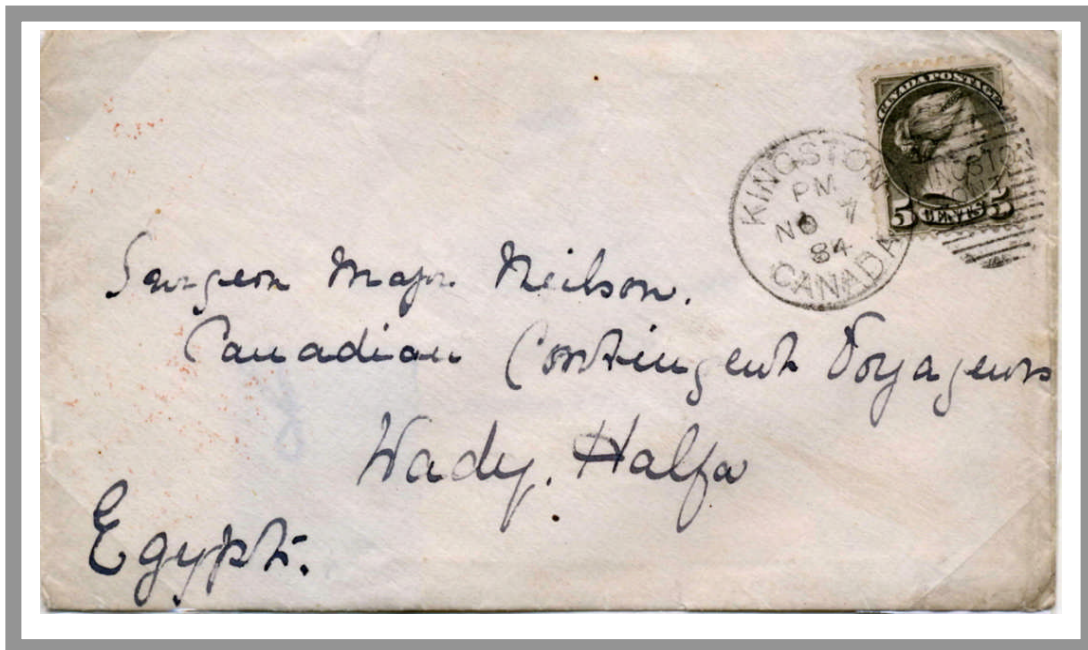 CANADA POSTAGE
5 CENTS 5
KINGSTON
ONT
KINGSTON
PM
NO 7
84
CANADA
Surgeon Major Neilson.
Canadian Contingent Voyageurs
Wady. Halfa
Egypt.